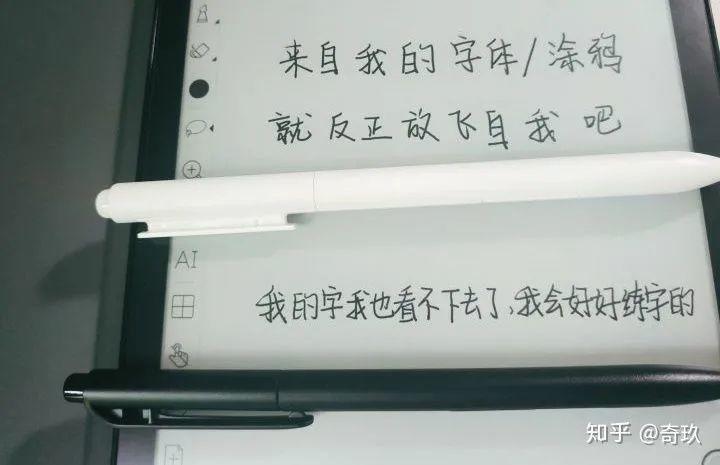 来自我的字体/涂鸦
就反正放飞自我吧
AI
我的字我也看不下去了,我会好好练字的
知乎 @奇玖